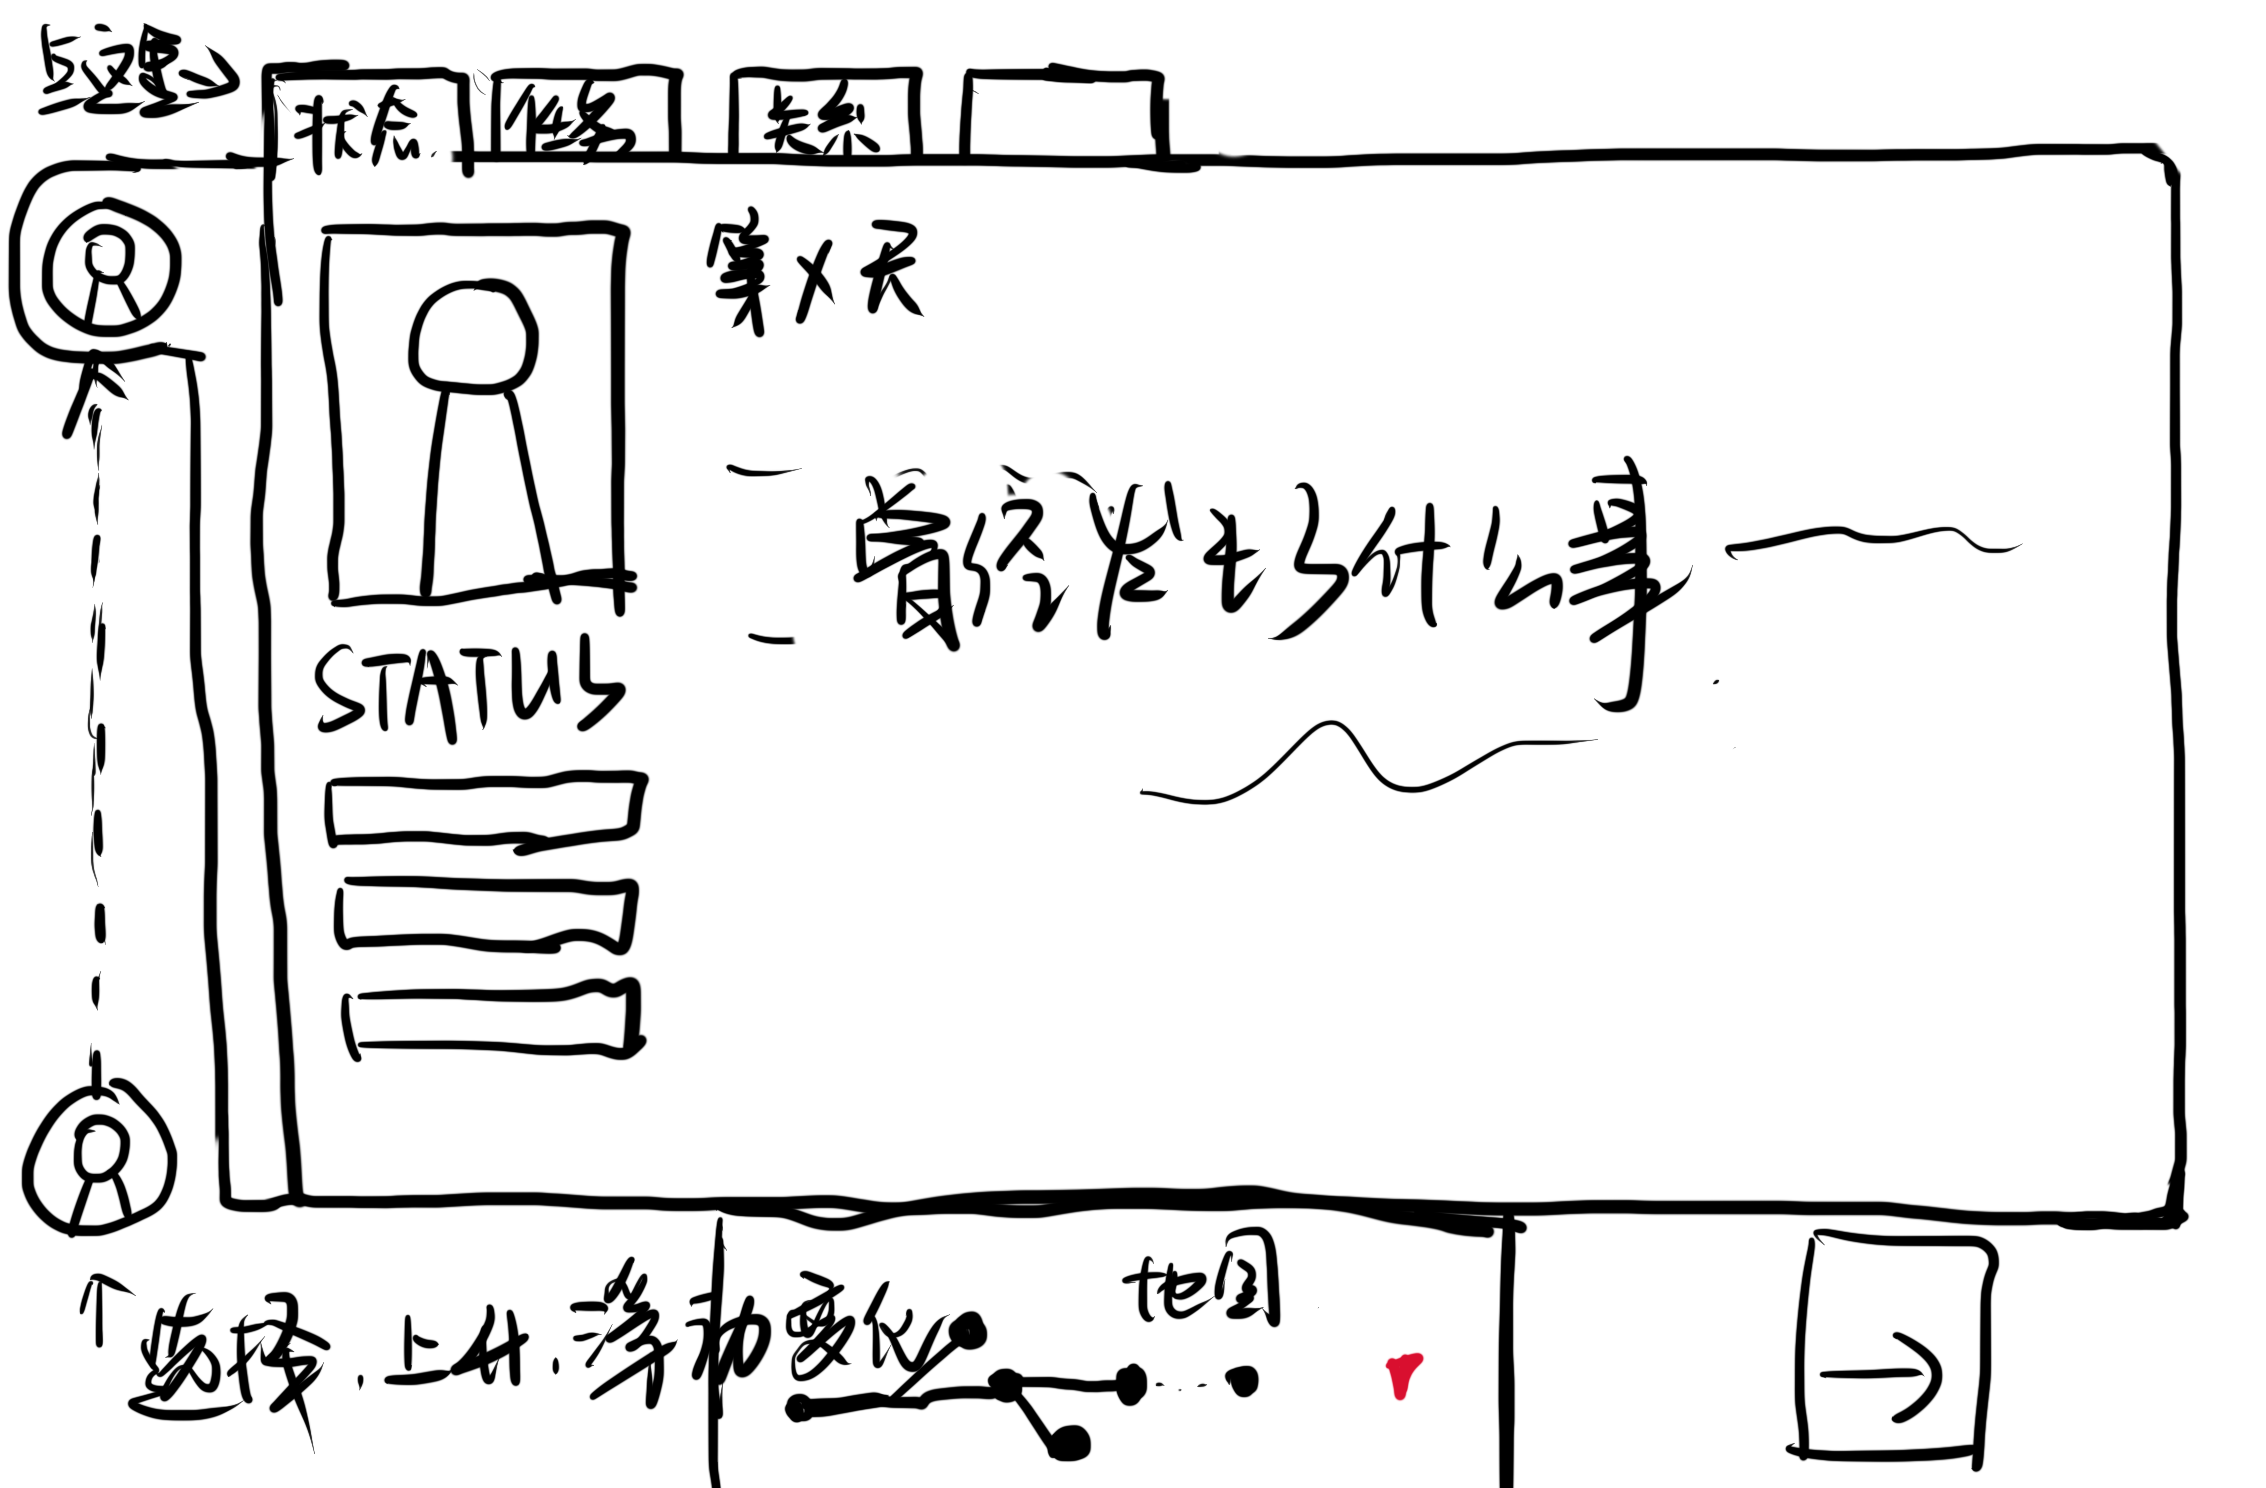 与这里→
状态
任务
关系
第X天
曾经发生了什么事
STATUS
地图
↑选择.上升.浮动变化
→